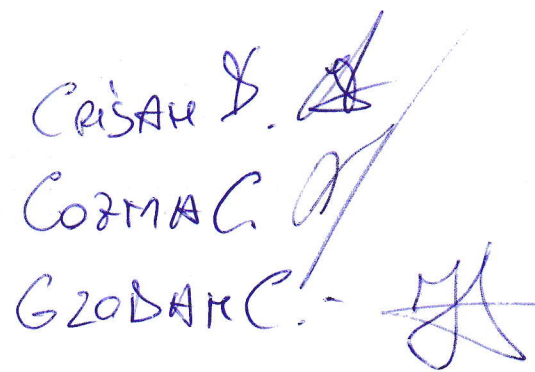 CRIȘAN D.
COZMA C.
GLODAN C.-